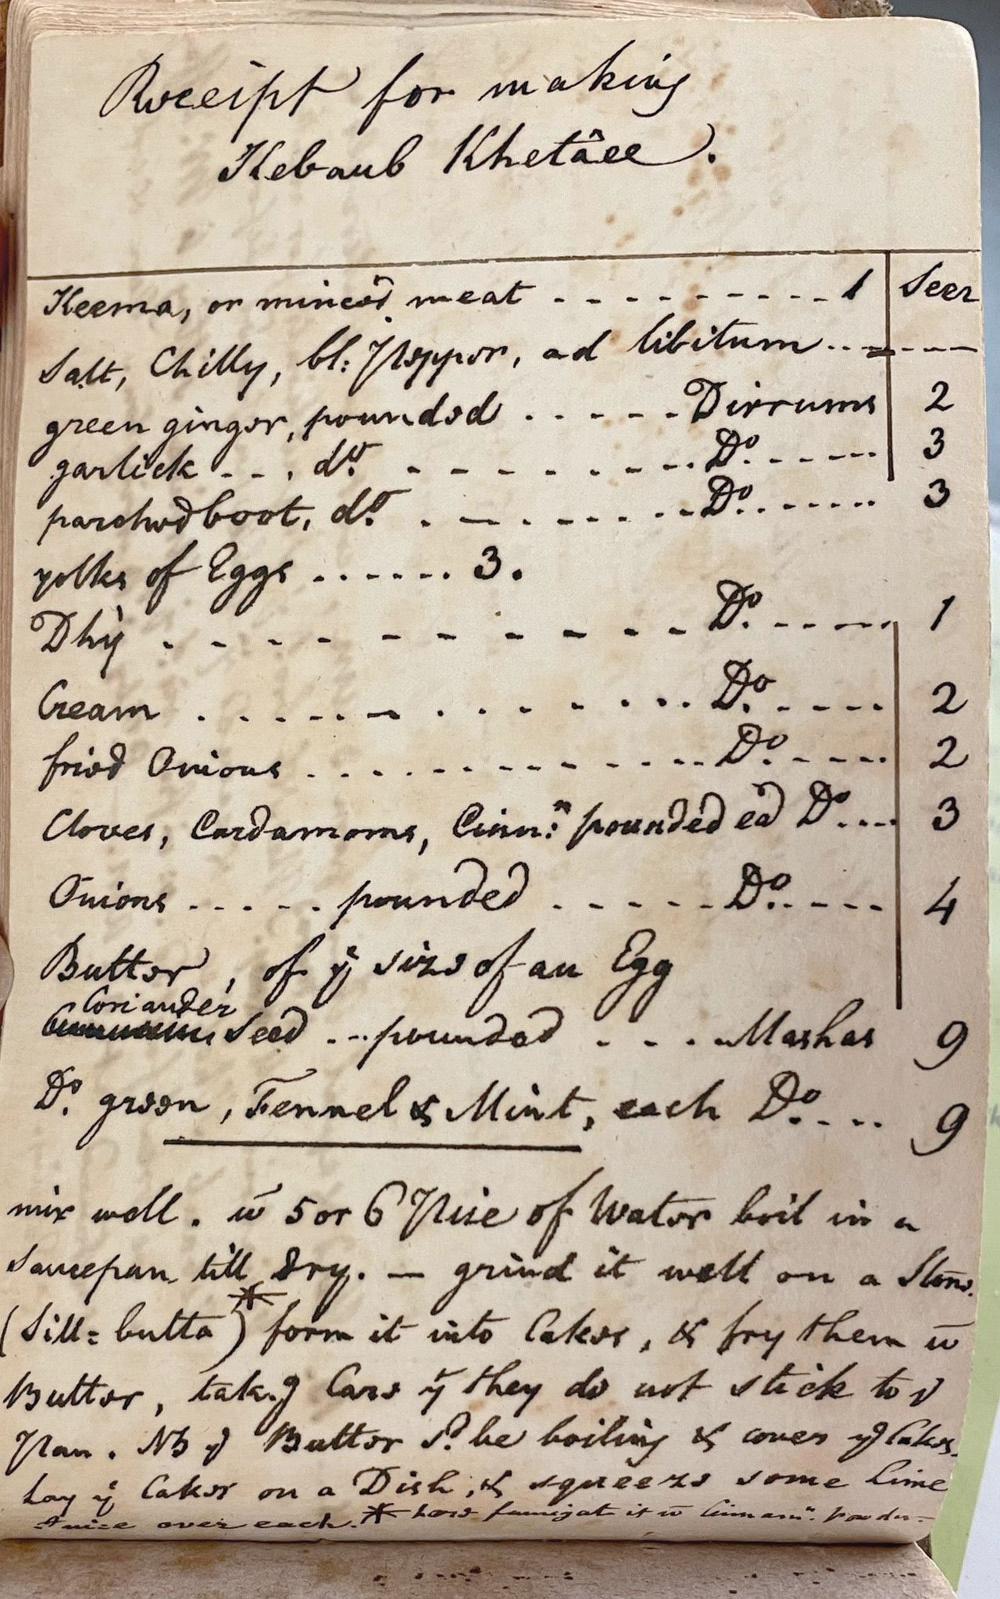 Receipt for making
Kebaub Khetâee.
Keema, or minced meat - - - - - - - - - - 1 Seer
Salt, Chilly, bl: Pepper, ad libitum - - - - -
green ginger, pounded - - - - - Dirrums 2
garlick - - . dº. - - - - - - - - Dº. - - - - 3
parched boot, dº. - - - - - - - Dº. - - - - 3
yolks of Eggs ...... 3.
Dhy - - - - - - - - - - - - Dº. - - - - 1
Cream . . . . . . . . . . . . Dº. - - - - 2
fried Onions . . . . . . . . . . . . Dº. - - - - 2
Cloves, Cardamoms, Cinn:ⁿ pounded ea Dº.... 3
Onions - - - - . pounded - - - - - Dº. - - - - 4
Butter, of yͤ size of an Egg
Coriander
Seed - - pounded - - - - Mashas 9
Dº. green, Fennel & Mint, each Dº. - - - 9
mix well. w̄ 5 or 6 Pice of Water boil in a
Saucepan till dry. — grind it well on a Stone.
(Sill=butta*) form it into Cakes, & fry them w̄
Butter, tak.g Care yͭ they do not stick to yͤ
Pan. NB yͤ Butter Sᵈ. be boiling & cover yͤ Cakes.
Lay yͤ Cakes on a Dish, & squeeze some Lime
Juice over each. * here fumigat it w̄ Cinnam.ⁿ Powder -